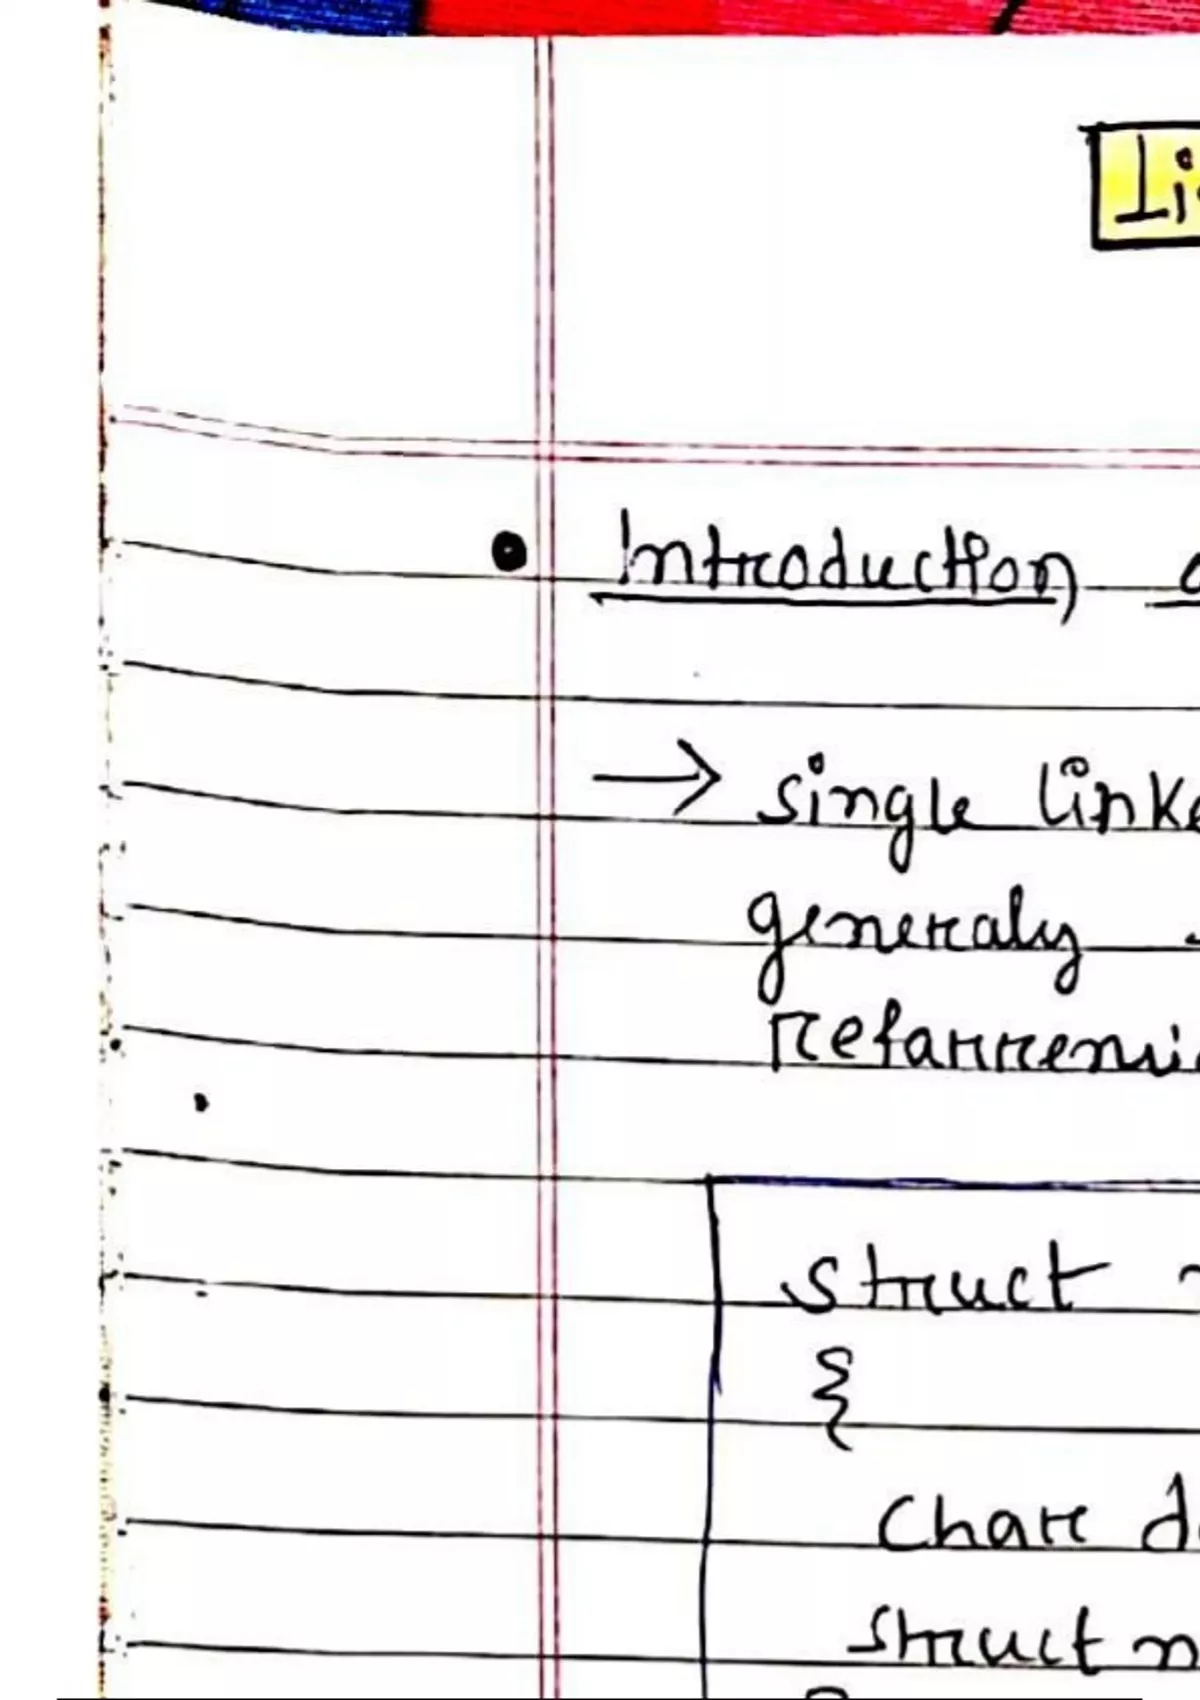 Li
Introduction
→ single linke
generaly
Refarrensi
struct
{
Char d
struct n